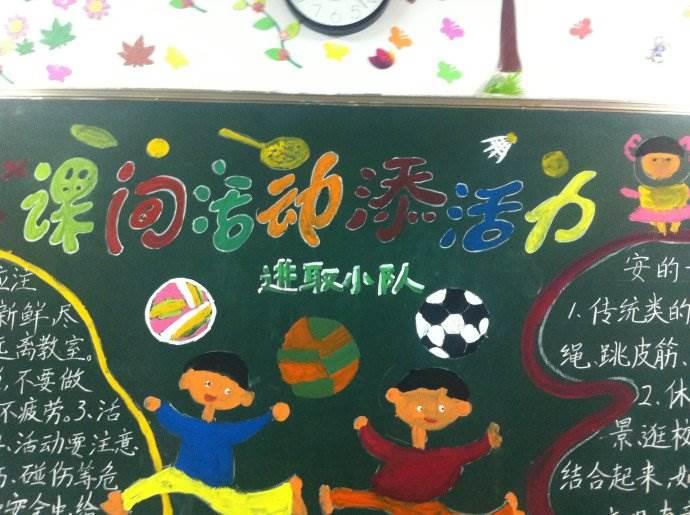 课间活动添活力
进取小队
应注
新鲜,尽
离教室。
不要做
不疲劳。3、活
活动要注意
碰伤等危
安的
1.传统类的
绳、跳皮筋、
2.休
景、逛校
结合起来,如